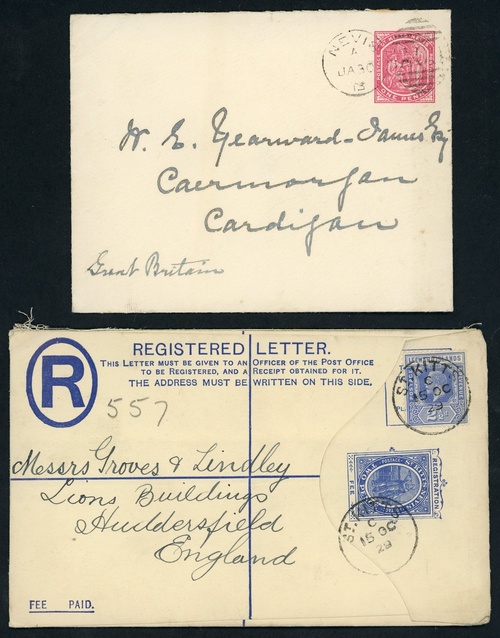 NEVIS
A
JA 30
13
ONE PENNY
W. E. Yearward-James Esq
Caermorgan
Cardigan
Great Britain
REGISTERED LETTER.
THIS LETTER MUST BE GIVEN TO AN OFFICER OF THE POST OFFICE
TO BE REGISTERED, AND A RECEIPT OBTAINED FOR IT.
THE ADDRESS MUST BE WRITTEN ON THIS SIDE.
R
557
ST. KITTS
C
15 OC
29
Messrs Groves & Lindley
Lions Buildings
Huddersfield
England
POSTAGE
REGISTRATION
FEE
C
15 OC
29
FEE PAID.